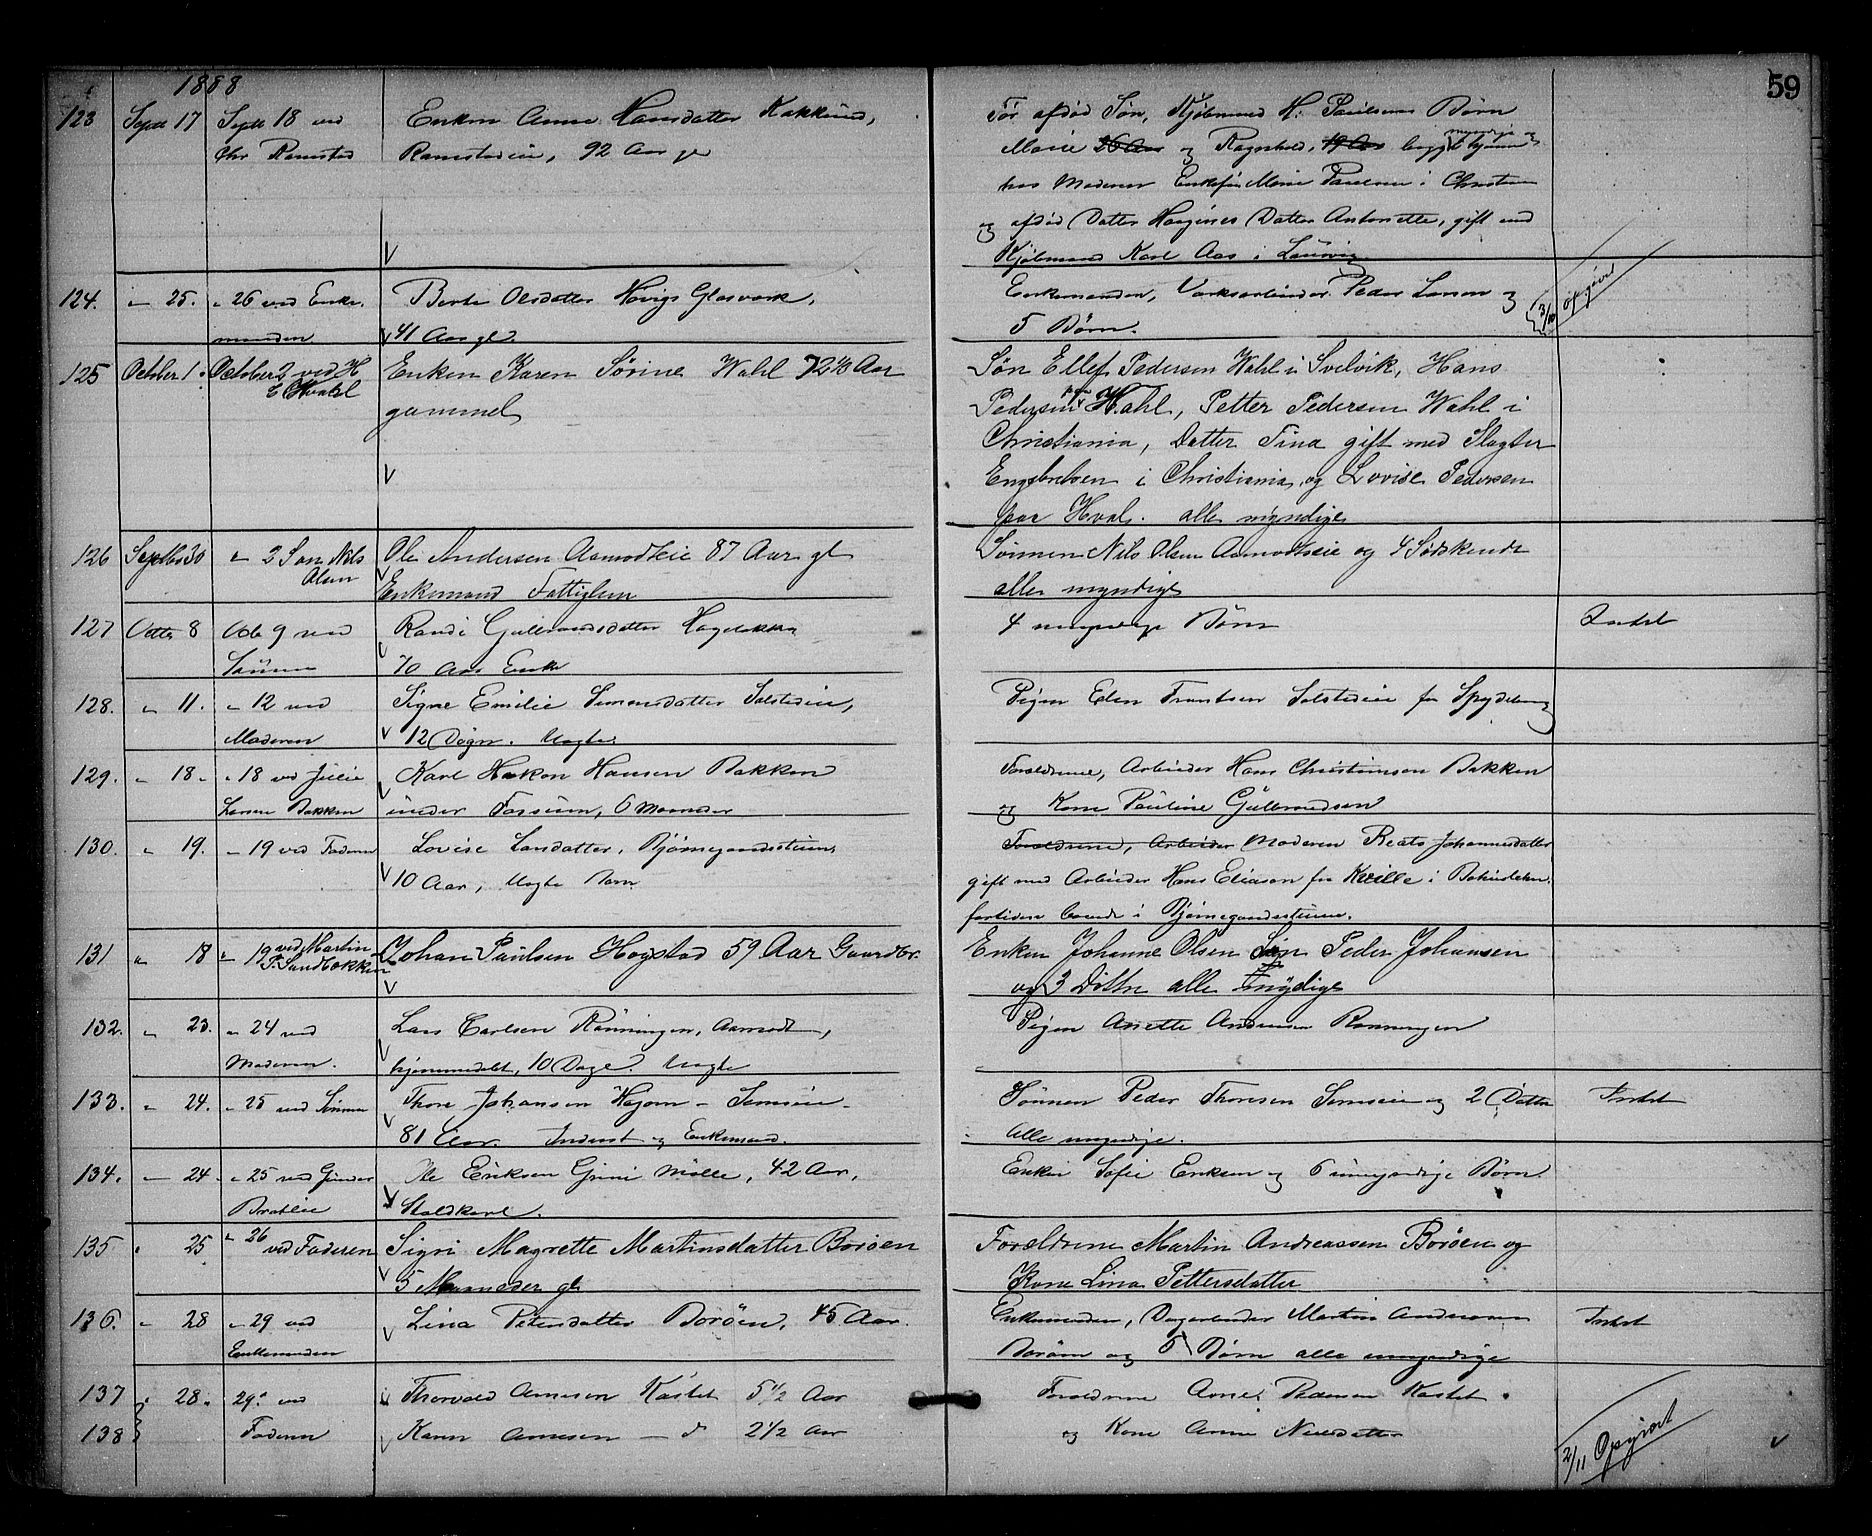 59
1888
123 Septb 17 Septb 18 ved Enken Anne Hansdatter Kakkund, Før afdød Søn, Kjøbmand H. Paulsens Børn
Chr Ramstad Ramstadeie, 92 Aar gl Marie 26 Aar og Ragnhild, 19 Aar begge myndige og hjemme
hos Moderen Enkefru Marie Paulsen i Christiania
og afdød Datter Datter Antonette, gift med
Kjøbmand Karl Aas i Laurvig
124. " 25. " 26 ved Enke- Berte Olsdatter Høvigs Glasværk, Enkemanden, Værksarbeider Peder Larsen og
manden 41 Aar gl. 5 Børn. 3/10 Opgjort
125 October 1. October 2 ved H Enken Karen Sørine Wahl 72 Aar Søn Ellef Pedersen Wahl i Svelvik, Hans
E Hvahl gammel Pedersen Hvahl, Petter Pedersen Wahl i
Christiania, Datter Tina gift med Slagter
Engebretsen i Christiania og Lovise Pedersen
paa Hval. alle myndige
126 Septbr 30 " 2 Søn Nils Ole Andersen Aamodteie 87 Aar gl Sønnen Nils Olsen Aamodteie og 4 Sødskende
Olsen Enkemand Fattiglem alle myndige
127 Octbr 8 Octb 9 ved Randi Gulbrandsdatter Hagelokken 4 myndige Børn Intet
Sønnen 70 Aar Enke
128. " 11. " 12 ved Signe Emilie Simonsdatter Solstadeie, Pigen Elen Frantsen Solstadeie fra Spydeberg
Moderen 12 Døgn. Uægte
129. " 18. " 18 ved Julie Karl Hakon Hansen Bakken Forældrene, Arbeider Hans Christiansen Bakken
Larsen Bakken under Fossum, 6 Maaneder og Kone Pauline Gulbrandsen
130. " 19. " 19 ved Faderen Lovise Larsdatter, Bjørnegaardssvingen Forældrene, Arbeider Moderen Beate Johannesdatter
10 Aar, Uægte Barn gift med Arbeider Hans Eliasen fra Kville i Bohuslehn
fortiden boende i Bjørnegaardssvingen.
131 " 18 " 19 ved Martin Johan Paulsen Hogstad 59 Aar Gaardbr. Enken Johanne Olsen Søn Peder Johansen
P. Sandbakken og 3 Døttre alle myndige
132. " 23. " 24 ved Lars Carlsen Rønningen, Aamodt, Pigen Anette Andersen Rønningen
Moderen. hjemmedøbt, 10 Dage. Uægte
133. " 24. " 25 ved Sønnen Thore Johansen Semseie Sønnen Peder Thoresen Semseie og 2 Døttre Intet
81 Aar. Inderst og Enkemand. Alle myndige.
134. " 24. " 25 ved Gunder Ole Eriksen Grini Mølle, 42 Aar, Enken Sofie Eriksen og 6 umyndige Børn.
Bratlie Staldkarl.
135 " 25 " 26 ved Faderen Sigri Magrette Martinsdatter Borøen Forældrene Martin Andreassen Borøen og
5 Maaneder gl Kone Lina Pettersdatter
136. " 28 " 29 ved Lina Petersdatter Borøen, 45 Aar. Enkemanden, Dagarbeider Martin Andreasen Intet
Enkemanden Borøen og 5 Børn alle umyndige
137 " 28. 29. ved Thorvald Arnesen Kastet 5 1/2 Aar Forældrene Arne Pedersen Kastet
138 Faderen Karen Arnesen — d 2 1/2 Aar og Kone Anne Nielsdatter 2/11 Opgjort